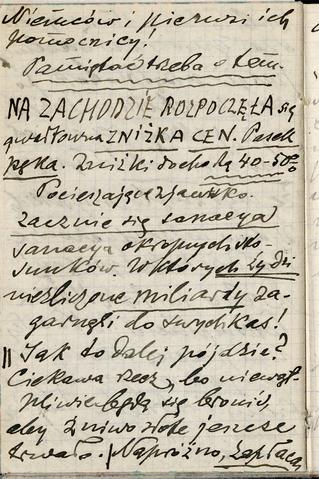 Niemców i pierwsi ich
pomocnicy!
Pamiętać trzeba o tem.
NA ZACHODZIE ROZPOCZĘŁA się
gwałtowna ZNIŻKA CEN. Pasek
pęka. Zniżki dochodzą 40-50%
Pocieszające zjawisko.
Zacznie się sanacya
sanacya okropnych sto-
sunków. W których żydzi
niezliczone miliardy za-
garnęli do swych kas!
Jak to dalej pójdzie?
Ciekawa rzecz, bo niewąt-
pliwie będą się bronić,
aby żniwo złote jeszcze
trwało. Napróżno, zapłacą